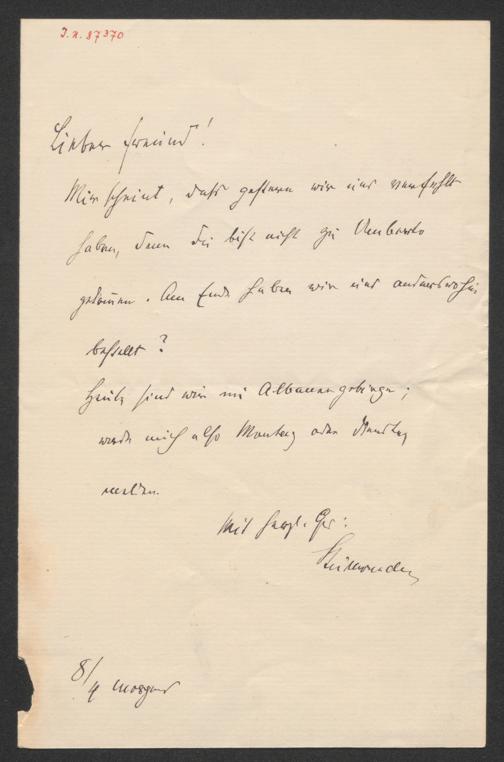 I.N. 87370
Lieber Freund!
Mir scheint, daß gestern wir uns verfehlt
haben, denn du bist nicht zu Umberto
gekommen. Am Ende haben wir uns anderswohin
bestellt?
Heute sind wir im Albanergebirge;
werde mich also Montag oder Dienstag
melden.
Mit herzl. Gr:
8/4 morgens